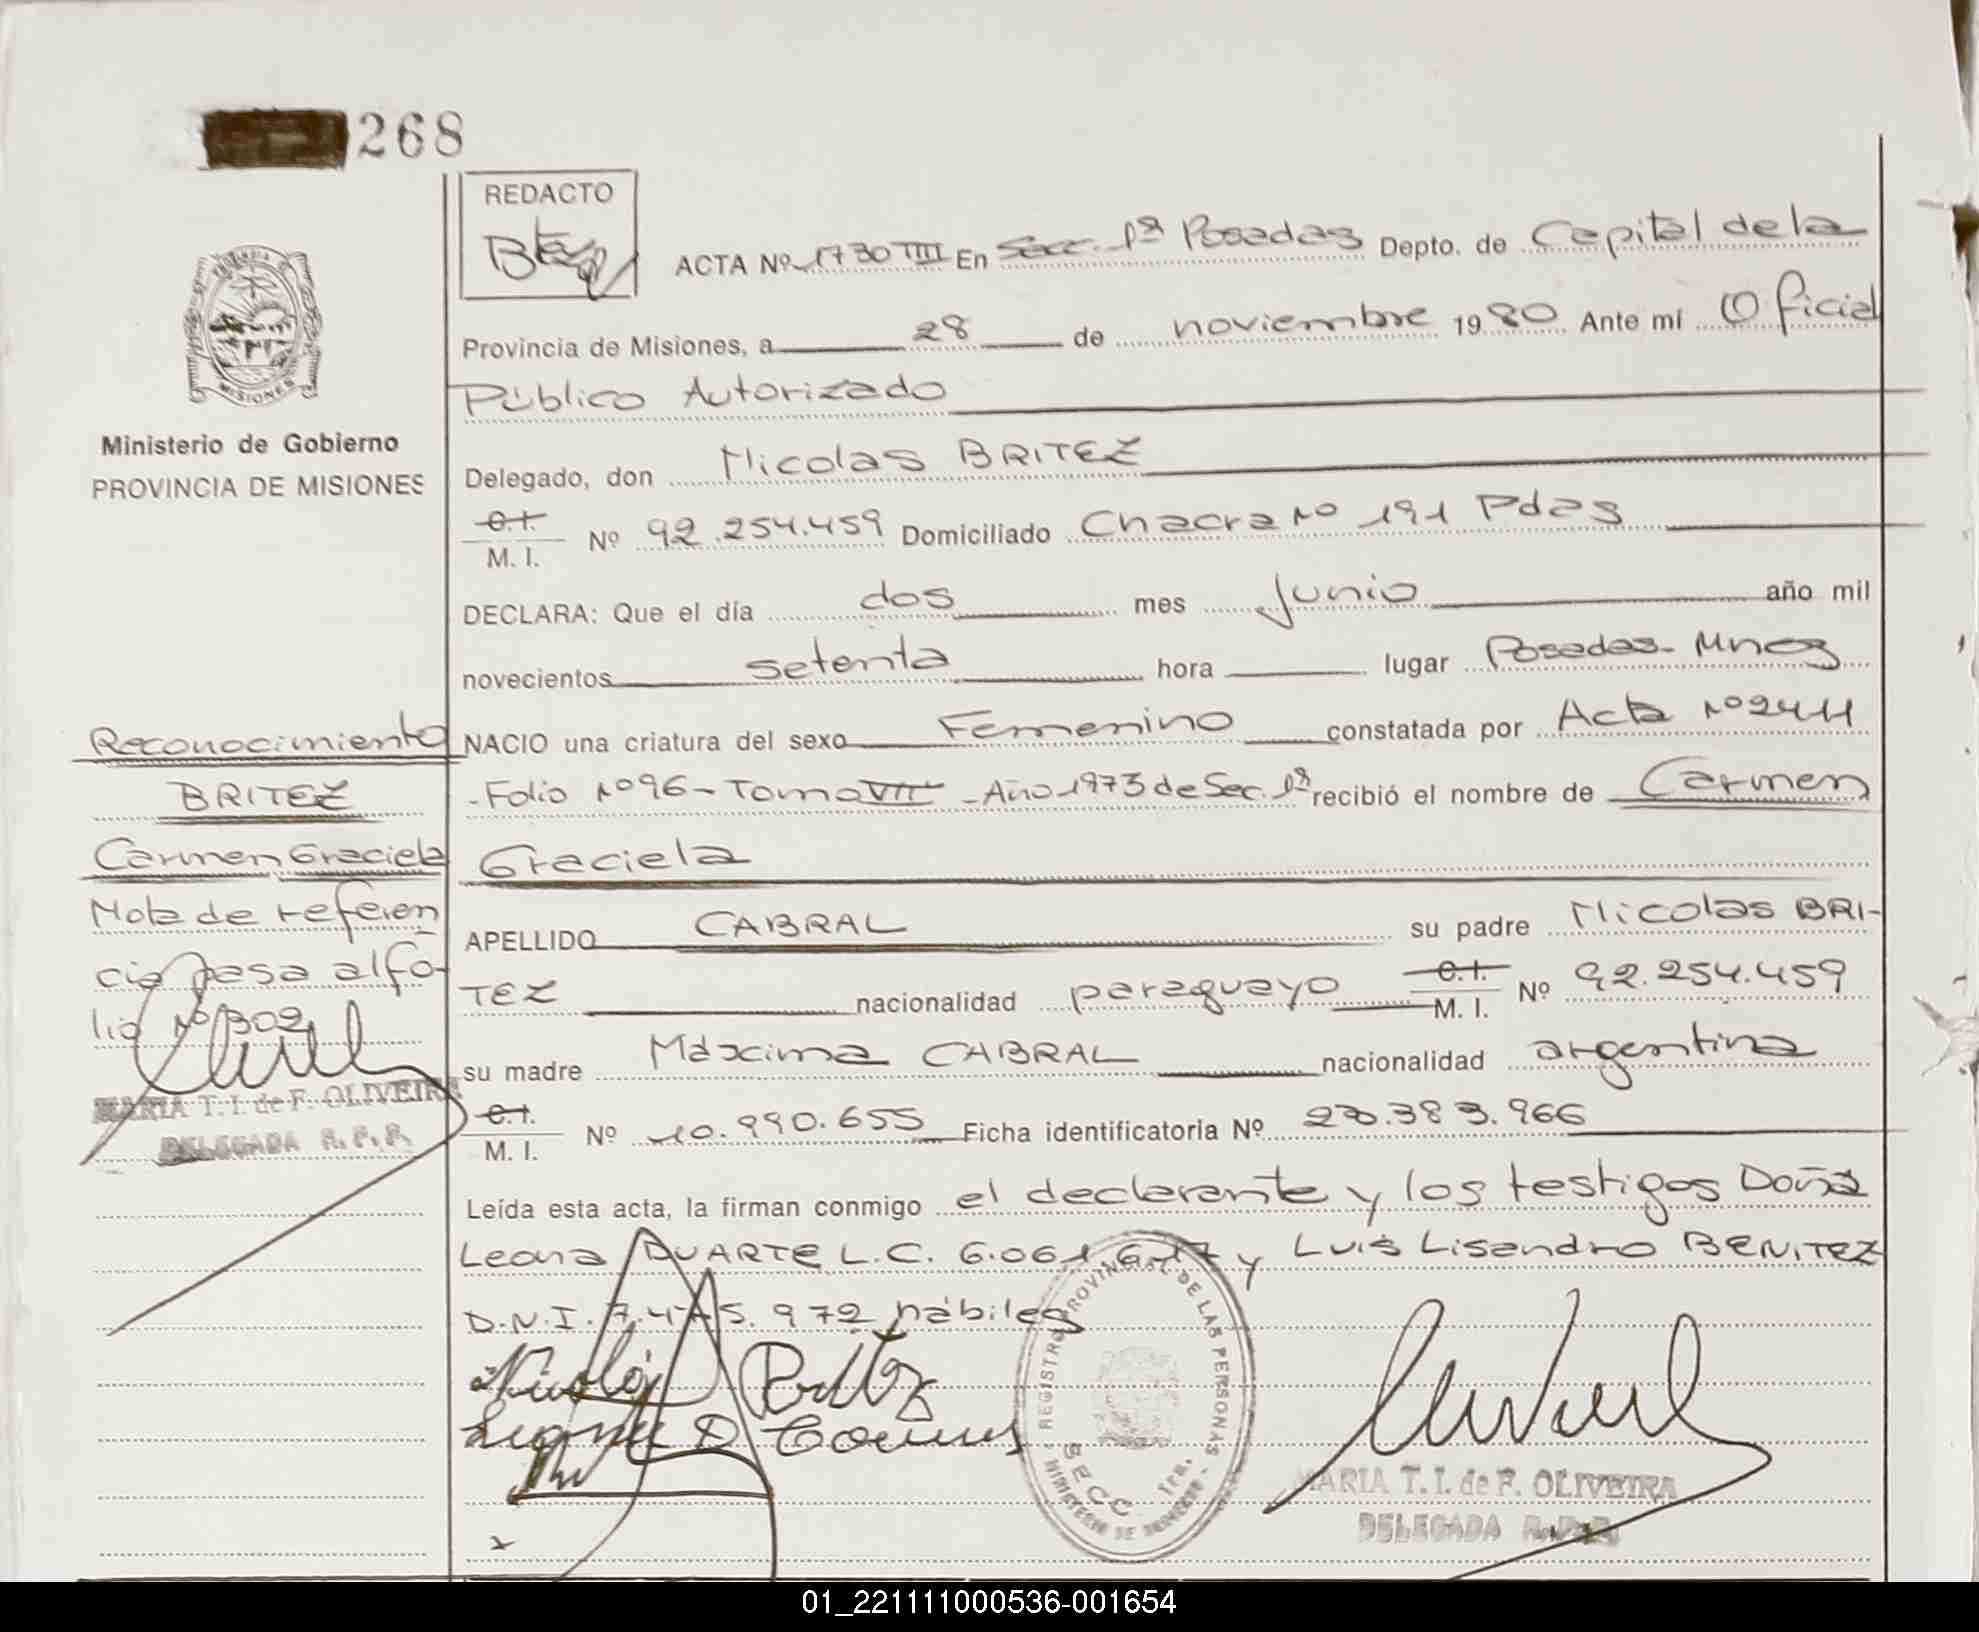 268
REDACTO
ACTA Nº 1730 TIII En Secc. 1ª Posadas Depto. de Capital de la
Provincia de Misiones, a 28 de noviembre 1980 Ante mí Oficial
Público Autorizado
Ministerio de Gobierno
PROVINCIA DE MISIONES
MISIONES
Delegado, don Nicolas BRITEZ
C.I.
M. I. Nº 92.254.459 Domiciliado Chacra Nº 191 Pdas
DECLARA: Que el día dos mes Junio año mil
novecientos setenta hora lugar Posadas - Mnes
NACIO una criatura del sexo Femenino constatada por Acta Nº 2411
- Folio Nº 96 - Tomo VII - Año 1973 de Sec. 1ª recibió el nombre de Carmen
Graciela
APELLIDO CABRAL su padre Nicolas BRI-
TEZ nacionalidad paraguayo C.I. M. I. Nº 92.254.459
su madre Máxima CABRAL nacionalidad argentina
C.I.
M. I. Nº 10.990.655 Ficha identificatoria Nº 20.383.966
Leída esta acta, la firman conmigo el declarante y los testigos Doña
Leona DUARTE L.C. 6.061.617 y Luis Lisandro BENITEZ
D.N.I. 7.475.972 hábiles
Reconocimiento
BRITEZ
Carmen Graciela
Nota de referen
cia pasa al fo-
lio Nº 302
MARIA T. I. de F. OLIVEIRA
DELEGADA R. P. P.
REGISTRO PROVINCIAL DE LAS PERSONAS
MINISTERIO DE GOBIERNO
SECC. 1ra.
MARIA T. I. de F. OLIVEIRA
DELEGADA R. P. P.
01_221111000536-001654